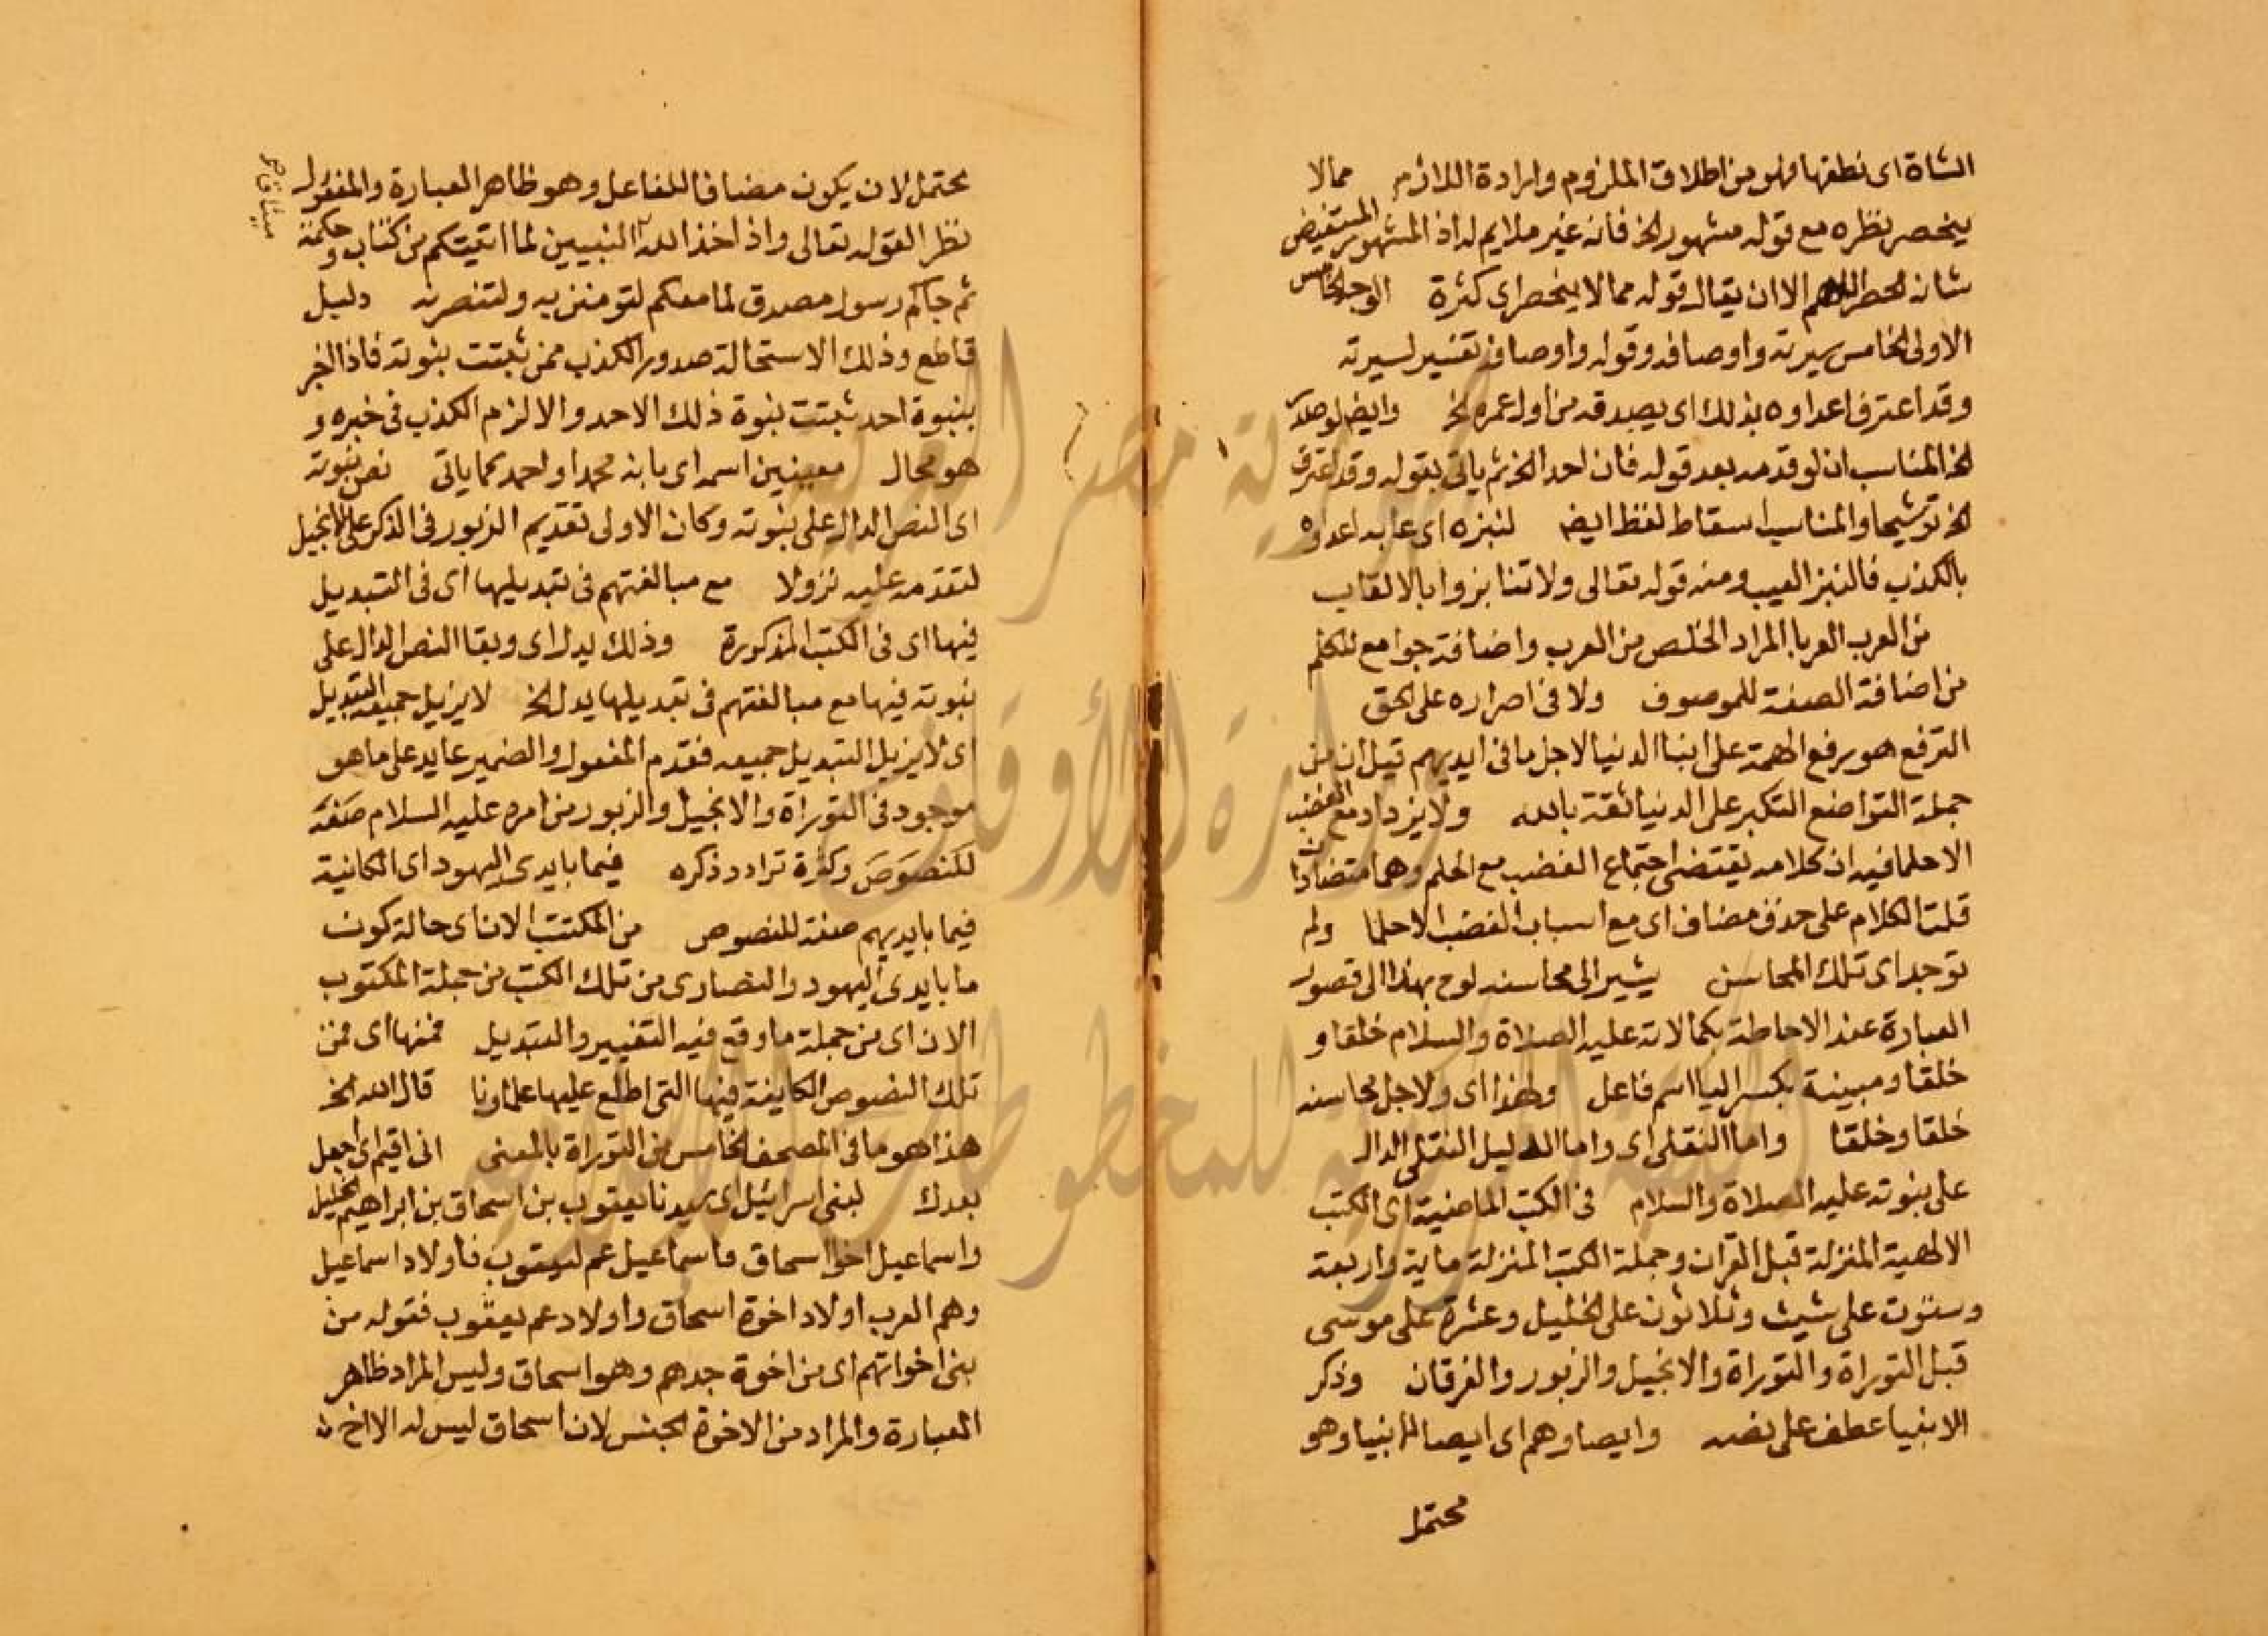 الشاة اى نطقها فهو من اطلاق الملزوم وارادة اللازم مما لا
ينحصر نظره مع قوله مشهور الخ فانه غير ملايم له اذ المشهور المستفيض
شانه الحصر اللهم الا ان يقال قوله مما لا ينحصر اى كثرة الوجه الخامس
الاولى الخامس سيرته واوصافه وقوله واوصافه تفسير لسيرته
وقد اعترف اعداوه بذلك اى بصدقه من اول عمره الخ وايض لو صدر
الخ المناسب ان لو قدمه بعد قوله فان احد الخ ثم ياتى بقوله وقد اعترف
الخ ترشيحا والمناسب اسقاط لفظ ايض لنبزه اى عابه اعداوه
بالكذب فالنبز العيب ومنه قوله تعالى ولا تنابزوا بالالقاب
من العرب العربا المراد الخلص من العرب واضافة جوامع للكلم
من اضافة الصفة للموصوف ولا فى اصراره على الحق
الترفع هو رفع الهمة على ابنا الدنيا لاجل ما فى ايديهم قيل ان من
جملة التواضع التكبر على الدنيا ثقة بالله ولا يزداد مع الغضب
الا حلما فيه ان كلامه يقتضى اجتماع الغضب مع الحلم وهما متضادان
قلت الكلام على حذف مضاف اى مع اسباب الغضب الا حلما ولم
توجد اى تلك المحاسن يشير الى محاسنه لوح بهذا الى قصور
العبارة عند الاحاطة بكمالاته عليه الصلاة والسلام خلقا و
خلقا ومبينة بكسر اليا اسم فاعل ولهذا اى ولاجل محاسنه
خلقا وخلقا واما النقلى اى واما الدليل النقلى الدال
على نبوته عليه الصلاة والسلام فى الكتب الماضية اى الكتب
الالهية المنزلة قبل القران وجملة الكتب المنزلة ماية واربعة
وستون على شيث وثلاثون على الخليل وعشرة على موسى
قبل التوراة والتوراة والانجيل والزبور والفرقان وذكر
الانبيا عطف على نصه وايصاوهم اى ايصا الانبيا وهو
محتمل
محتمل لان يكون مضافا للفاعل وهو ظاهر العبارة والمفعول
نظرا لقوله تعالى واذ اخذ الله النبيين لما اتيتكم من كتاب وحكمة
ميثاق صح
ثم جاكم رسول مصدق لما معكم لتومنن به ولتنصرنه دليل
قاطع وذلك لاستحالة صدور الكذب ممن ثبتت نبوته فاذا اخبر
بنبوة احد ثبتت نبوة ذلك الاحد والا لزم الكذب فى خبره و
هو محال معينين اسمه اى بانه محمد او احمد كما ياتى نص نبوته
اى النص الدال على نبوته وكان الاولى تقديم الزبور فى الذكر على الانجيل
لتقدمه عليه نزولا مع مبالغتهم فى تبديلها اى فى التبديل
فيها اى فى الكتب المذكورة وذلك يدل اى وبقا النص الدال على
نبوته فيها مع مبالغتهم فى تبديلها يدل الخ لا يزيل جميعه التبديل
اى لا يزيل التبديل جميعه فقدم المفعول والضمير عايد على ما هو
موجود فى التوراة والانجيل والزبور من امره عليه السلام صفة
للنصوص وكثرة ترادد ذكره فيما بايدى اليهود اى الكانية
فيما بايديهم صفة للنصوص من المكتب الان اى حالة كون
ما بايدى اليهود والنصارى من تلك الكتب من جملة المكتوب
الان اى من جملة ما وقع فيه التغيير والتبديل فمنها اى فمن
تلك النصوص الكاينة فيها التى اطلع عليها علماونا قال الله الخ
هذا هو ما فى المصحف الخامس من التوراة بالمعنى انى اقيم اى اجعل
بعدك لبنى اسرائيل اى سيدنا يعقوب بن اسحاق بن ابراهيم الخليل
واسماعيل اخو اسحاق فاسماعيل عم ليعقوب فاولاد اسماعيل
وهم العرب اولاد اخوة اسحاق واولاد عم يعقوب فقوله من
بنى اخواتهم اى من اخوة جدهم وهو اسحاق وليس المراد ظاهر
العبارة والمراد من الاخوة الجنس لان اسحاق ليس له الا اخ
جمهورية مصر العربية
وزارة الأوقاف
المكتبة المركزية للمخطوطات الإسلامية